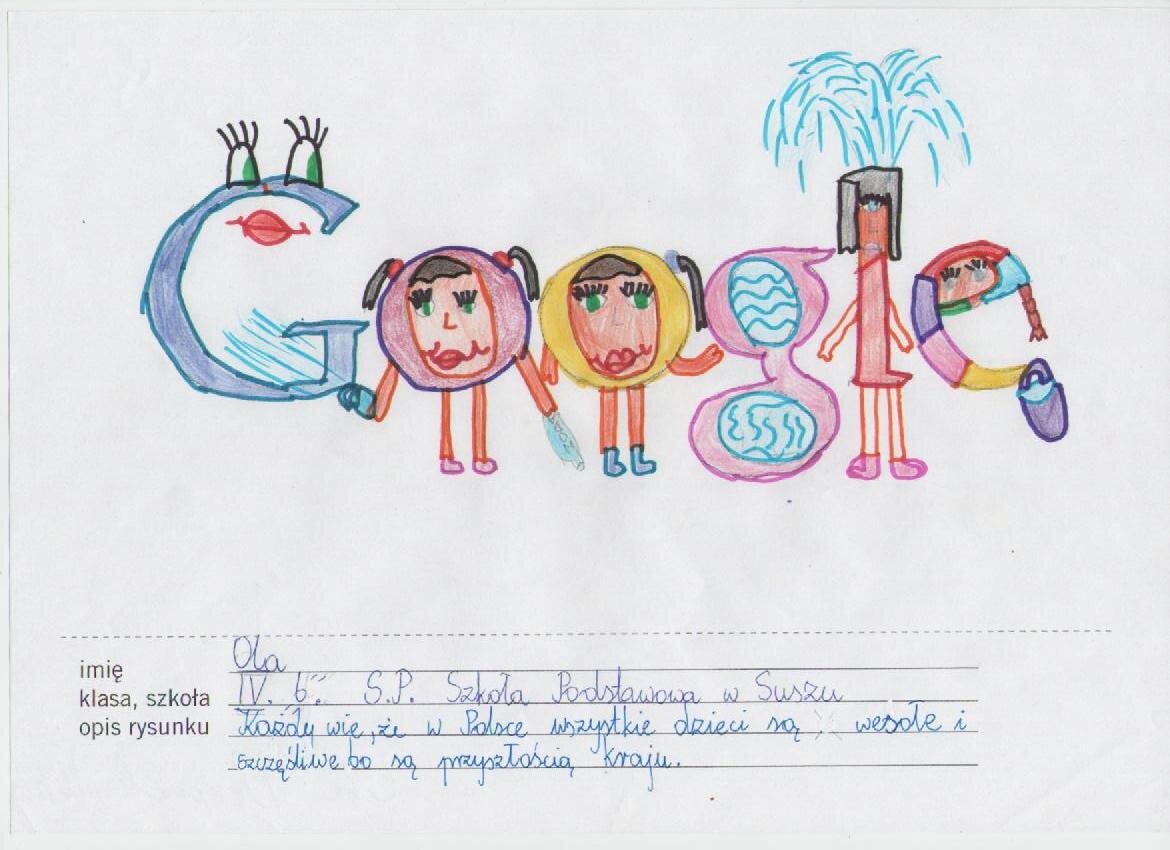 Google
imię Ola
klasa, szkoła IV. b". S.P. Szkoła Podstawowa w Suszu
opis rysunku Każdy wie, że w Polsce wszystkie dzieci są wesołe i
szczęśliwe bo są przyszłością kraju.